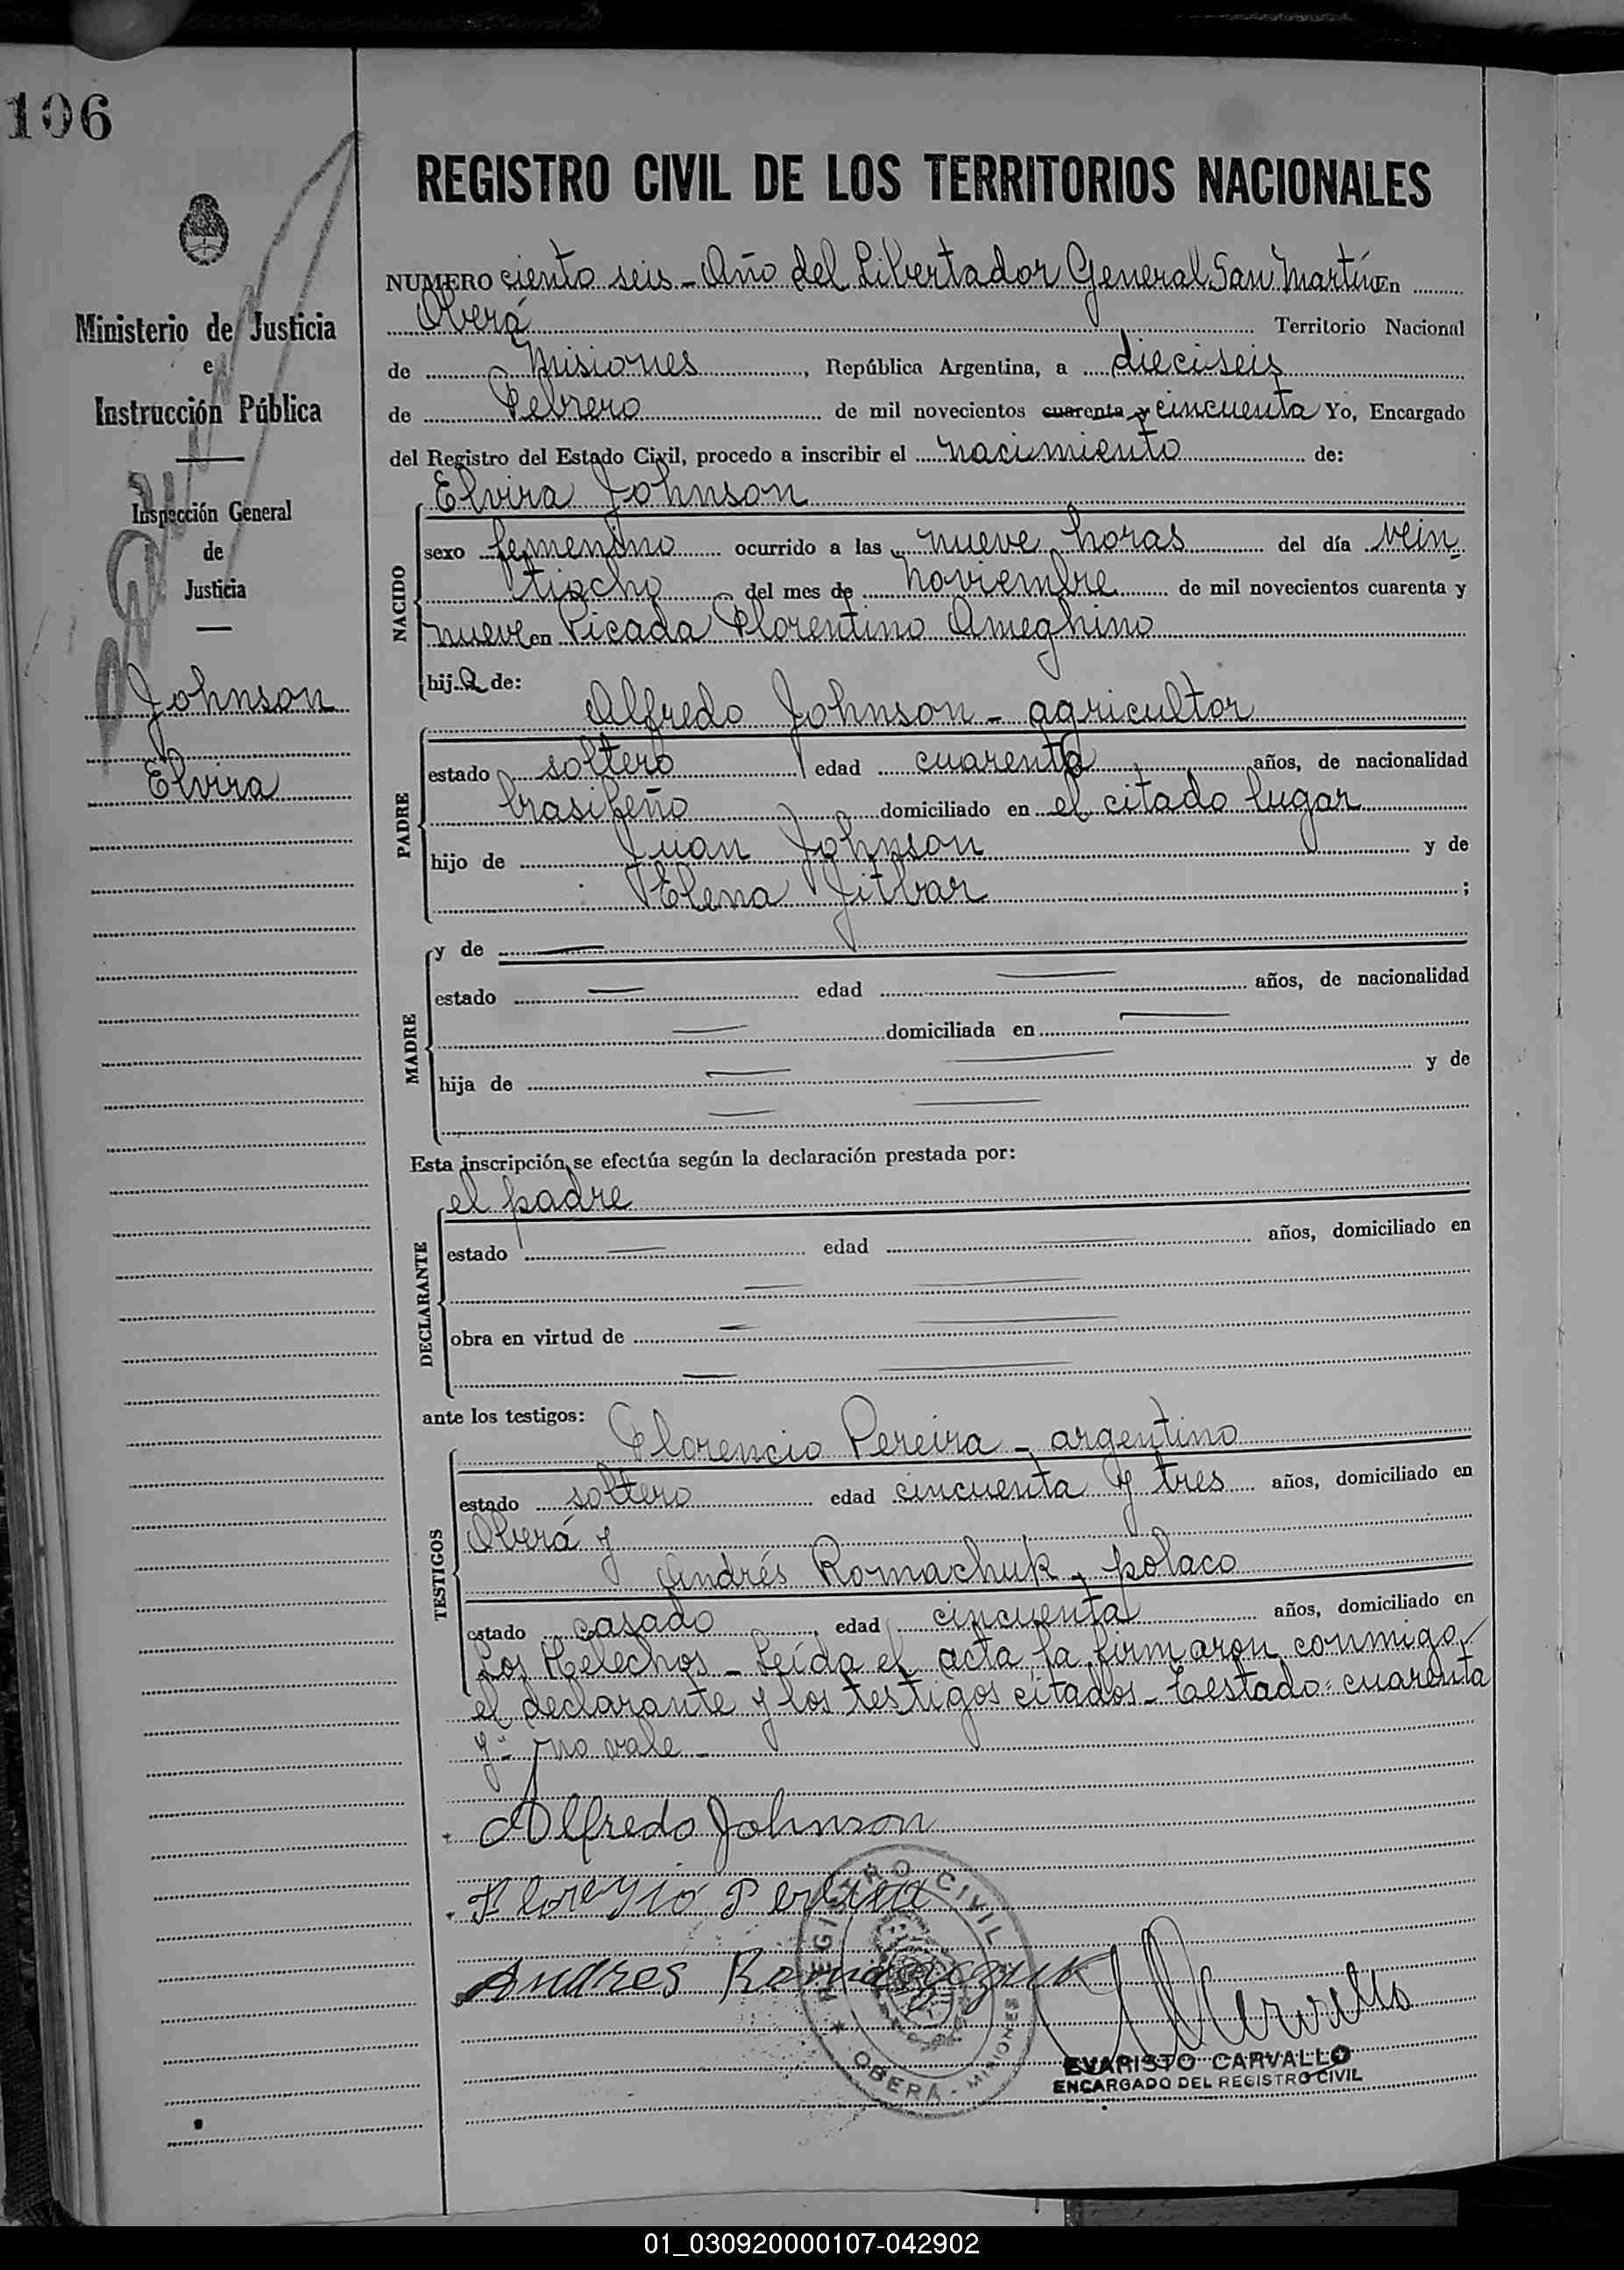 106
REGISTRO CIVIL DE LOS TERRITORIOS NACIONALES
NUMERO ciento seis - Año del Libertador General San Martín En
Oberá Territorio Nacional
de Misiones, República Argentina, a dieciseis
de Febrero de mil novecientos cuarenta y cincuenta Yo, Encargado
del Registro del Estado Civil, procedo a inscribir el nacimiento de:
Ministerio de Justicia
e
Instrucción Pública
Inspección General
de
Justicia
Johnson
Elvira
NACIDO
Elvira Johnson
sexo femenino ocurrido a las nueve horas del día vein
tiocho del mes de noviembre de mil novecientos cuarenta y
nueve en Picada Florentino Ameghino
hija de:
PADRE
Alfredo Johnson - agricultor
estado soltero edad cuarenta años, de nacionalidad
brasileño domiciliado en el citado lugar
hijo de Juan Johnson y de
Elena Jitbar ;
MADRE
y de
estado edad años, de nacionalidad
domiciliada en
hija de y de
Esta inscripción se efectúa según la declaración prestada por:
DECLARANTE
el padre
estado edad años, domiciliado en
obra en virtud de
ante los testigos:
TESTIGOS
Florencio Pereira - argentino
estado soltero edad cincuenta y tres años, domiciliado en
Oberá y
Andrés Romachuk - polaco
estado casado, edad cincuenta años, domiciliado en
Los Helechos - Leída el acta la firmaron conmigo
el declarante y los testigos citados - Testado: cuarenta
y - no vale -
Alfredo Johnson
Andres
REGISTRO CIVIL
OBERÁ - MISIONES
EVARISTO CARVALLO
ENCARGADO DEL REGISTRO CIVIL
01_030920000107-042902